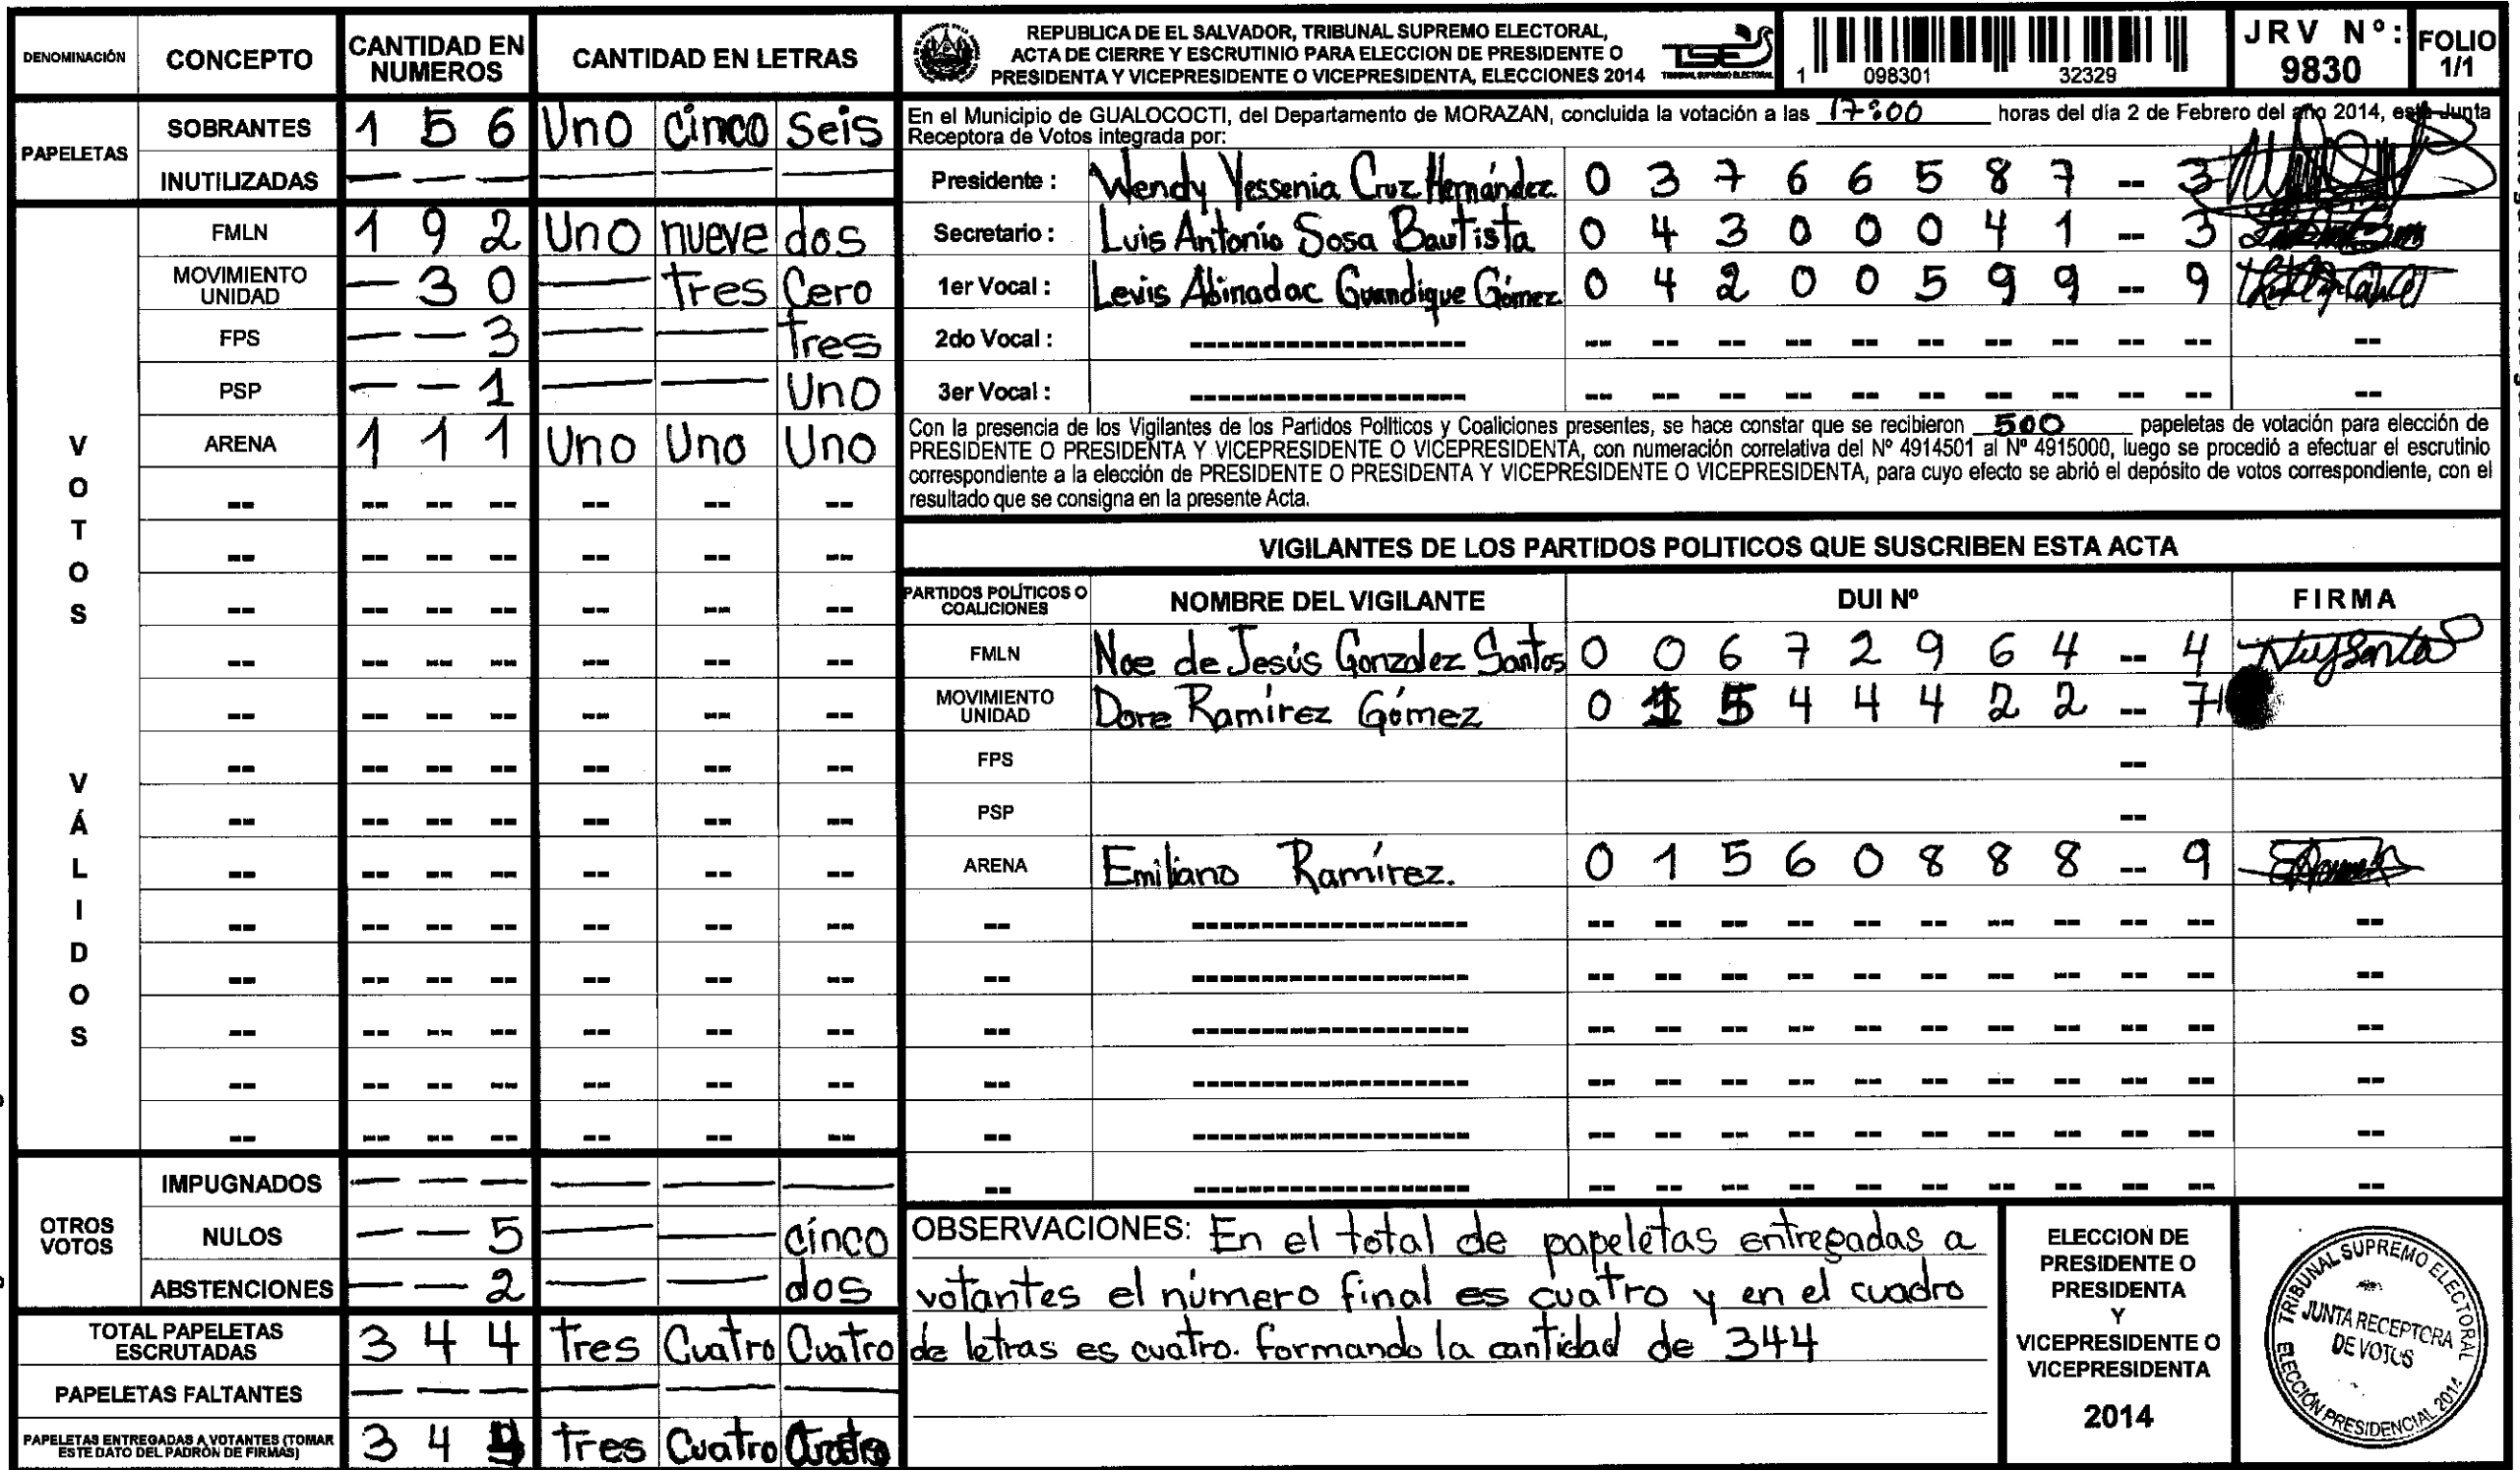 DENOMINACIÓN CONCEPTO CANTIDAD EN NUMEROS CANTIDAD EN LETRAS
PAPELETAS
SOBRANTES 1 5 6 Uno cinco Seis
INUTILIZADAS — — — — — —
VOTOS VÁLIDOS
FMLN 1 9 2 Uno nueve dos
MOVIMIENTO UNIDAD — 3 0 — Tres Cero
FPS — — 3 — — Tres
PSP — — 1 — — Uno
ARENA 1 1 1 Uno Uno Uno
-- -- -- -- -- -- --
-- -- -- -- -- -- --
-- -- -- -- -- -- --
-- -- -- -- -- -- --
-- -- -- -- -- -- --
-- -- -- -- -- -- --
-- -- -- -- -- -- --
-- -- -- -- -- -- --
-- -- -- -- -- -- --
-- -- -- -- -- -- --
-- -- -- -- -- -- --
-- -- -- -- -- -- --
-- -- -- -- -- -- --
OTROS VOTOS
IMPUGNADOS — — — — — —
NULOS — — 5 — — cinco
ABSTENCIONES — — 2 — — dos
TOTAL PAPELETAS ESCRUTADAS 3 4 4 Tres Cuatro Cuatro
PAPELETAS FALTANTES — — — — — —
PAPELETAS ENTREGADAS A VOTANTES (TOMAR ESTE DATO DEL PADRÓN DE FIRMAS) 3 4 4 Tres Cuatro Cuatro
REPUBLICA DE EL SALVADOR, TRIBUNAL SUPREMO ELECTORAL,
ACTA DE CIERRE Y ESCRUTINIO PARA ELECCION DE PRESIDENTE O
PRESIDENTA Y VICEPRESIDENTE O VICEPRESIDENTA, ELECCIONES 2014
TSE
TRIBUNAL SUPREMO ELECTORAL
1 098301 32329
JRV Nº: 9830
FOLIO 1/1
En el Municipio de GUALOCOCTI, del Departamento de MORAZAN, concluida la votación a las 17:00 horas del día 2 de Febrero del año 2014, esta Junta
Receptora de Votos integrada por:
Presidente : Wendy Yessenia Cruz Hernández 0 3 7 6 6 5 8 7 -- 3
Secretario : Luis Antonio Sosa Bautista 0 4 3 0 0 0 4 1 -- 3
1er Vocal : Levis Abinadac Guandique Gómez 0 4 2 0 0 5 9 9 -- 9
2do Vocal : ------------------- -- -- -- -- -- -- -- -- -- -- --
3er Vocal : ------------------- -- -- -- -- -- -- -- -- -- -- --
Con la presencia de los Vigilantes de los Partidos Políticos y Coaliciones presentes, se hace constar que se recibieron 500 papeletas de votación para elección de
PRESIDENTE O PRESIDENTA Y VICEPRESIDENTE O VICEPRESIDENTA, con numeración correlativa del Nº 4914501 al Nº 4915000, luego se procedió a efectuar el escrutinio
correspondiente a la elección de PRESIDENTE O PRESIDENTA Y VICEPRESIDENTE O VICEPRESIDENTA, para cuyo efecto se abrió el depósito de votos correspondiente, con el
resultado que se consigna en la presente Acta.
VIGILANTES DE LOS PARTIDOS POLITICOS QUE SUSCRIBEN ESTA ACTA
PARTIDOS POLÍTICOS O COALICIONES NOMBRE DEL VIGILANTE DUI Nº FIRMA
FMLN Noe de Jesús Gonzalez Santos 0 0 6 7 2 9 6 4 -- 4
MOVIMIENTO UNIDAD Dore Ramírez Gómez 0 1 5 4 4 4 2 2 -- 7
FPS --
PSP --
ARENA Emiliano Ramírez. 0 1 5 6 0 8 8 8 -- 9
-- ------------------- -- -- -- -- -- -- -- -- -- -- --
-- ------------------- -- -- -- -- -- -- -- -- -- -- --
-- ------------------- -- -- -- -- -- -- -- -- -- -- --
-- ------------------- -- -- -- -- -- -- -- -- -- -- --
-- ------------------- -- -- -- -- -- -- -- -- -- -- --
-- ------------------- -- -- -- -- -- -- -- -- -- -- --
OBSERVACIONES: En el total de papeletas entregadas a
votantes el número final es cuatro y en el cuadro
de letras es cuatro. formando la cantidad de 344
ELECCION DE
PRESIDENTE O
PRESIDENTA
Y
VICEPRESIDENTE O
VICEPRESIDENTA
2014
TRIBUNAL SUPREMO ELECTORAL
JUNTA RECEPTORA
DE VOTOS
ELECCIÓN PRESIDENCIAL 2014